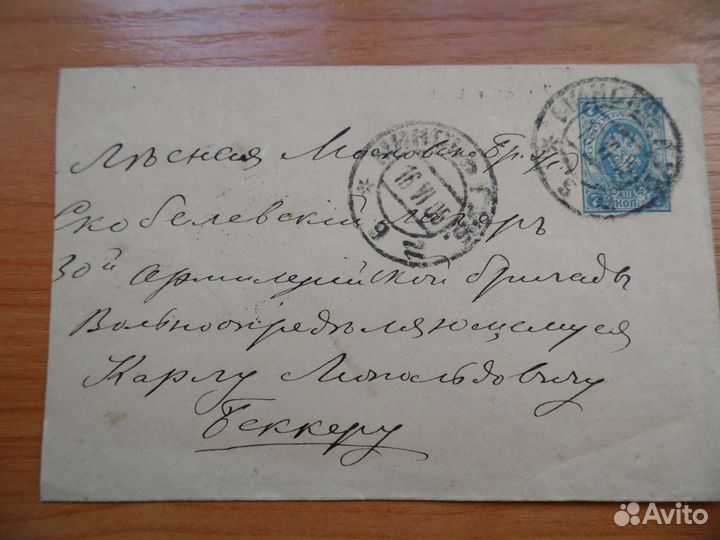 Лѣсная Московско Бр. ж д
Скобелевскій лагерь
30й Артиллерійской бригады
Вольноопредѣляющемуся
Карлу Леопольдовичу
Беккеру
МИНСКЪ
16 VI
6
КОП
5
Avito